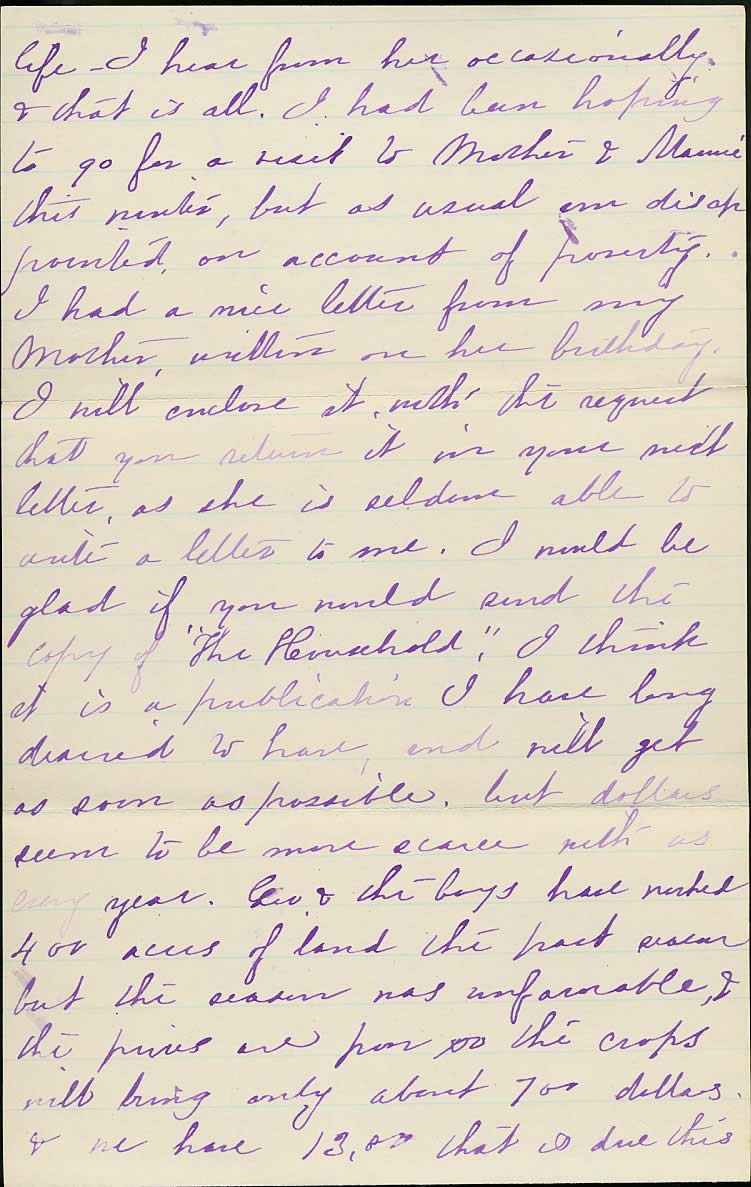 life - I hear from her occasionally.
& that is all. I had been hoping
to go for a visit to Mother & Mamie
this winter, but as usual am disap
pointed, on account of poverty.
I had a nice letter from my
Mother, written on her birthday.
I will enclose it, with the request
that you return it in your next
letter, as she is seldom able to
write a letter to me. I would be
glad if you would send the
copy of "The Household", I think
it is a publication I have long
desired to have, and will get
as soon as possible. but dollars
seem to be more scarce with us
every year. Geo & the boys have worked
400 acres of land the past season
but the season was unfavorable, &
the prices are poor so the crops
will bring only about 700 dollars.
& we have 13,00 that is due this